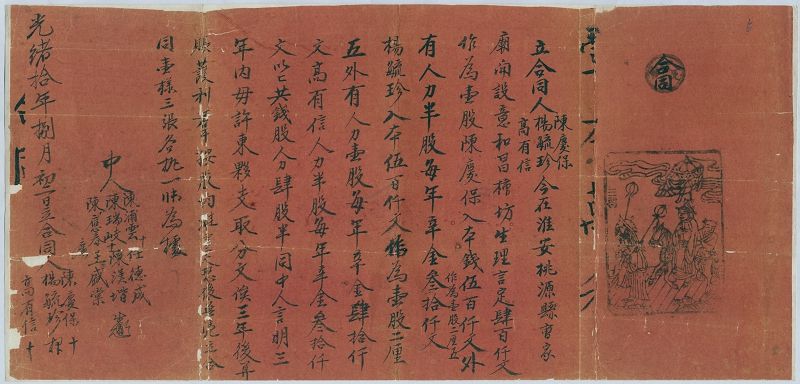 合同
立合同人陳慶保楊毓珍高有信今在淮安桃源縣曹家
廟開設意和昌棉坊生理言定肆百仟文
作為壹股陳慶保入本錢伍百仟文作為壹股二厘五外
有人力半股每年辛金叁拾仟文
楊毓珍入本伍百仟文作為壹股二厘
五外有人力壹股每年辛金肆拾仟
文高有信人力半股每年辛金叁拾仟
文以上共錢股人分肆股半同中人言明三
年內毋許東夥支取分文俟三年後算
賬獲利若干按股均
同壹樣三張各執一帋為據
中人陳浦雲十任德成
陳瑞岐十陳漢增
王盛棠
光緒拾年捌月初一日立合同人陳慶保十
楊毓珍
高有信十